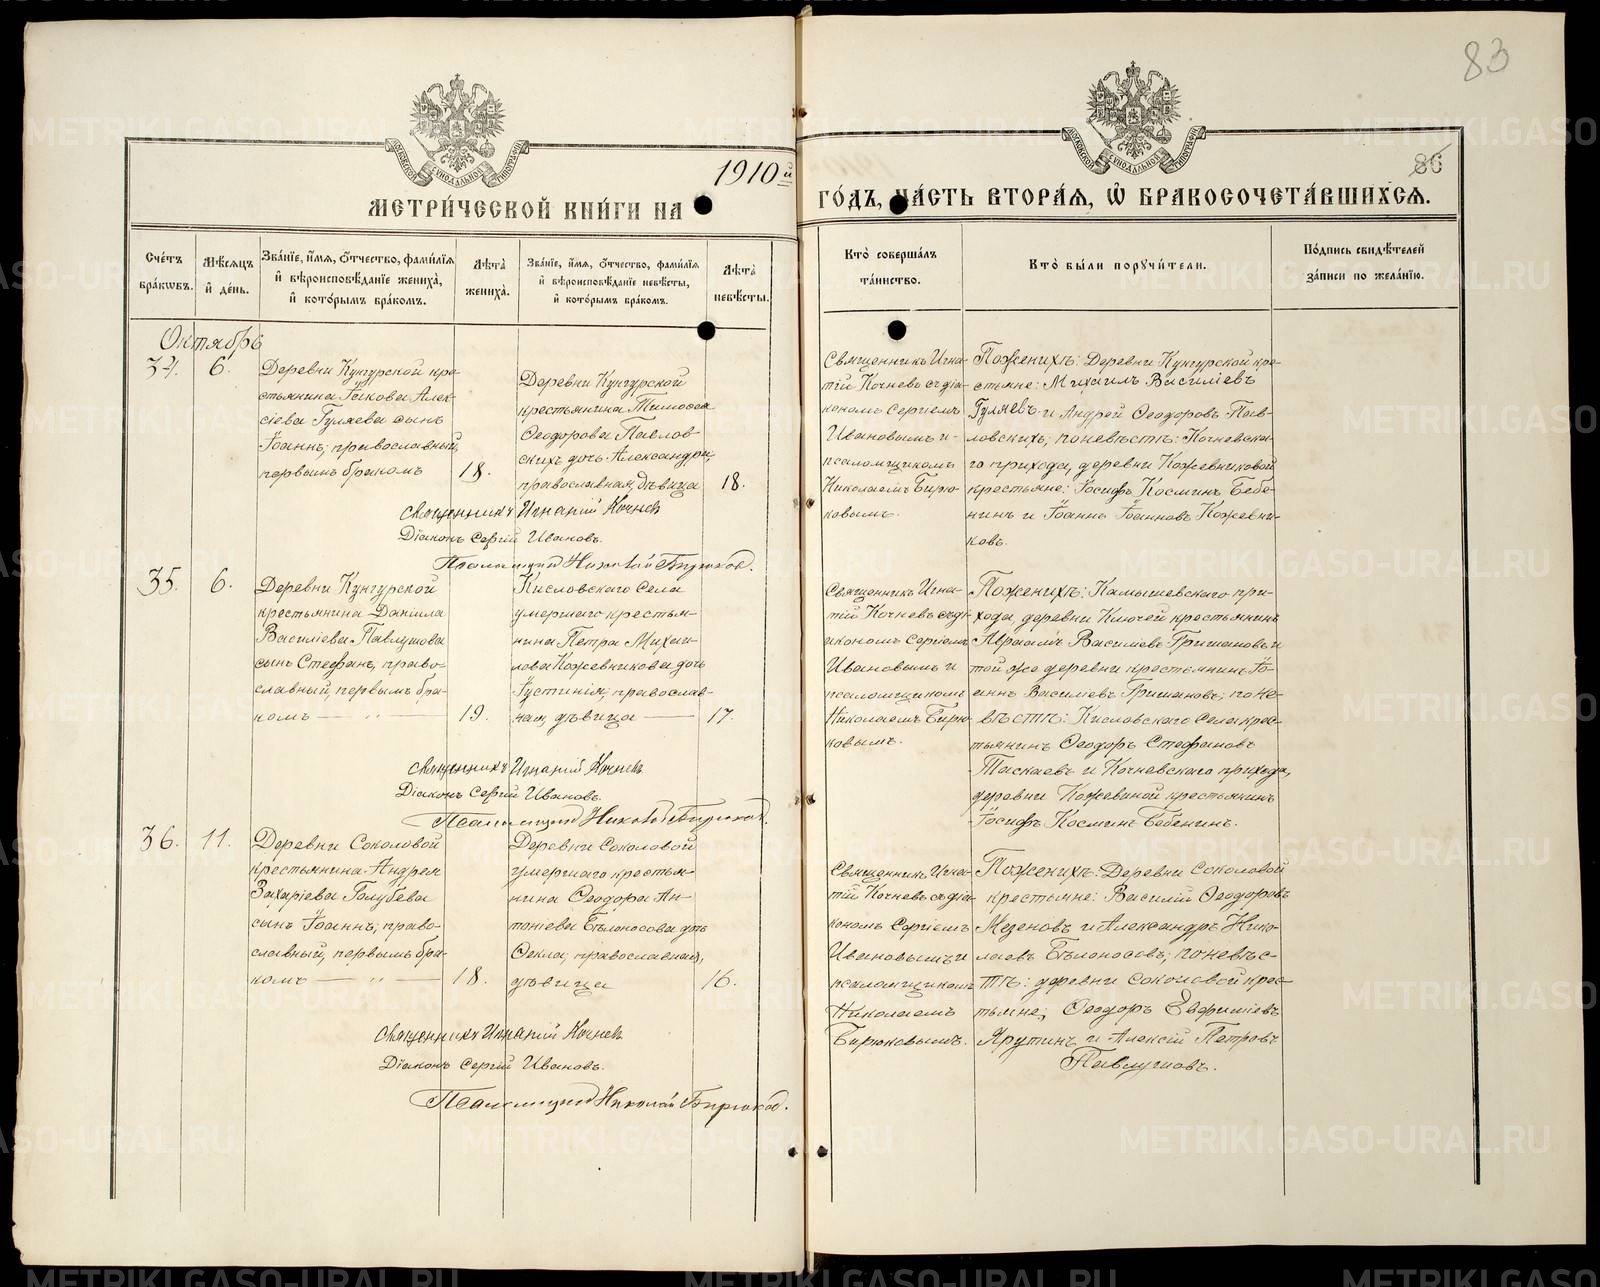 83
86
1910й
МЕТРИ́ЧЕСКОЙ КНИ́ГИ НА ГО́ДЪ, ЧА́СТЬ ВТОРА́Я, Ѡ҆ БРАКОСОЧЕТА́ВШИХСЯ.
Сче́тъ бра́кѡвъ.
Мѣ́сяцъ и҆ де́нь.
Зва́нїе, и҆́мя, ѻ҆́тчество, фами́лїя
и҆ вѣроисповѣ́данїе жениха̀,
и҆ кото́рымъ бра́комъ.
Лѣ́та жениха̀.
Зва́нїе, и҆́мя, ѻ҆́тчество, фами́лїя
и҆ вѣроисповѣ́данїе невѣ́сты,
и҆ кото́рымъ бра́комъ.
Лѣ́та невѣ́сты.
Кто̀ соверша́лъ
та́инство.
Кто̀ бы́ли порꙋчи́тели.
По́дпись свидѣ́телей
за́писи по жела́нїю.
Октябрь
34.
6.
Деревни Кунгурской кре-
стьянина Іакова Алек-
сіева Гуляева сынъ
Іоаннъ, православный,
первымъ бракомъ
18.
Деревни Кунгурской
крестьянина Тимоѳея
Ѳеодорова Павлов-
скихъ дочь Александра,
православная, дѣвица
18.
Священникъ Игна-
тій Кочневъ съ діа-
кономъ Сергіемъ
Ивановымъ и
псаломщикомъ
Николаемъ Бирю-
ковымъ.
По женихѣ: Деревни Кунгурской кре-
стьяне: Михаилъ Василіевъ
Гуляевъ и Андрей Ѳеодоровъ Пав-
ловскихъ; по невѣстѣ: Кочневска-
го прихода, деревни Кожевниковой
крестьяне: Іосифъ Косминъ Бебе-
нинъ и Іоаннъ Іоанновъ Кожевни-
ковъ.
Священникъ Игнатій Кочневъ
Діаконъ Сергій Ивановъ.
Псаломщикъ Николай Бирюков.
35.
6.
Деревни Кунгурской
крестьянина Даніила
Василіева Павлушова
сынъ Стефанъ, право-
славный, первымъ бра-
комъ — „ —
19.
Кисловскаго Села
умершаго крестья-
нина Петра Михаи-
лова Кожевникова дочь
Іустинія, православ-
ная, дѣвица —
17.
Священникъ Игна-
тій Кочневъ съ ді-
акономъ Сергіемъ
Ивановымъ и
псаломщикомъ
Николаемъ Бирю-
ковымъ.
По женихѣ: Камышевскаго при-
хода, деревни Ключей крестьянинъ
Авраамъ Василіевъ Гришановъ и
той же деревни крестьянинъ Іо-
аннъ Василіевъ Гришановъ; по не-
вѣстѣ: Кисловскаго Села крес-
тьянинъ Ѳеодоръ Стефановъ
Таскаевъ и Кочневскаго прихода,
деревни Кожевиной крестьянинъ
Іосифъ Косминъ Бебенинъ.
Священникъ Игнатій Кочневъ
Діаконъ Сергій Ивановъ.
Псаломщикъ Николай Бирюков.
36.
11.
Деревни Соколовой
крестьянина Андрея
Захаріева Голубева
сынъ Іоаннъ, право-
славный, первымъ бра-
комъ — „ —
18.
Деревни Соколовой
умершаго крестья-
нина Ѳеодора Ан-
тоніева Бѣлоносова дочь
Ѳекла, православная,
дѣвица
16.
Священникъ Игна-
тій Кочневъ съ діа-
кономъ Сергіемъ
Ивановымъ и
псаломщикомъ
Николаемъ
Бирюковымъ.
По женихѣ: Деревни Соколовой
крестьяне: Василій Ѳеодоровъ
Мезеновъ и Александръ Нико-
лаевъ Бѣлоносовъ; по невѣс-
тѣ: деревни Соколовой крес-
тьяне, Ѳеодоръ Евфиміевъ
Ярутинъ и Алексій Петровъ
Павлушовъ.
Священникъ Игнатій Кочневъ
Діаконъ Сергій Ивановъ.
Псаломщикъ Николай Бирюков.
METRIKI.GASO-URAL.RU